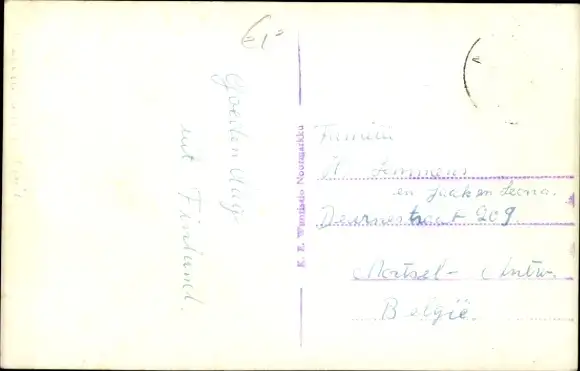 Goeden dag
uit Finland.
K. E. Noormarkku
Familie
en Jaak en Leona.
Deurnestraat 209.
Mortsel - Antw.
België.